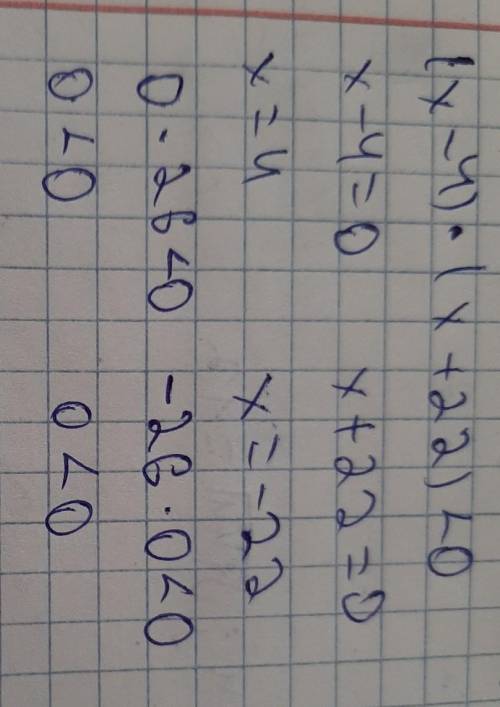 (x-4)·(x+22)<0
x-4=0 x+22=0
x=4 x=-22
0·26<0 -26·0<0
0<0 0<0